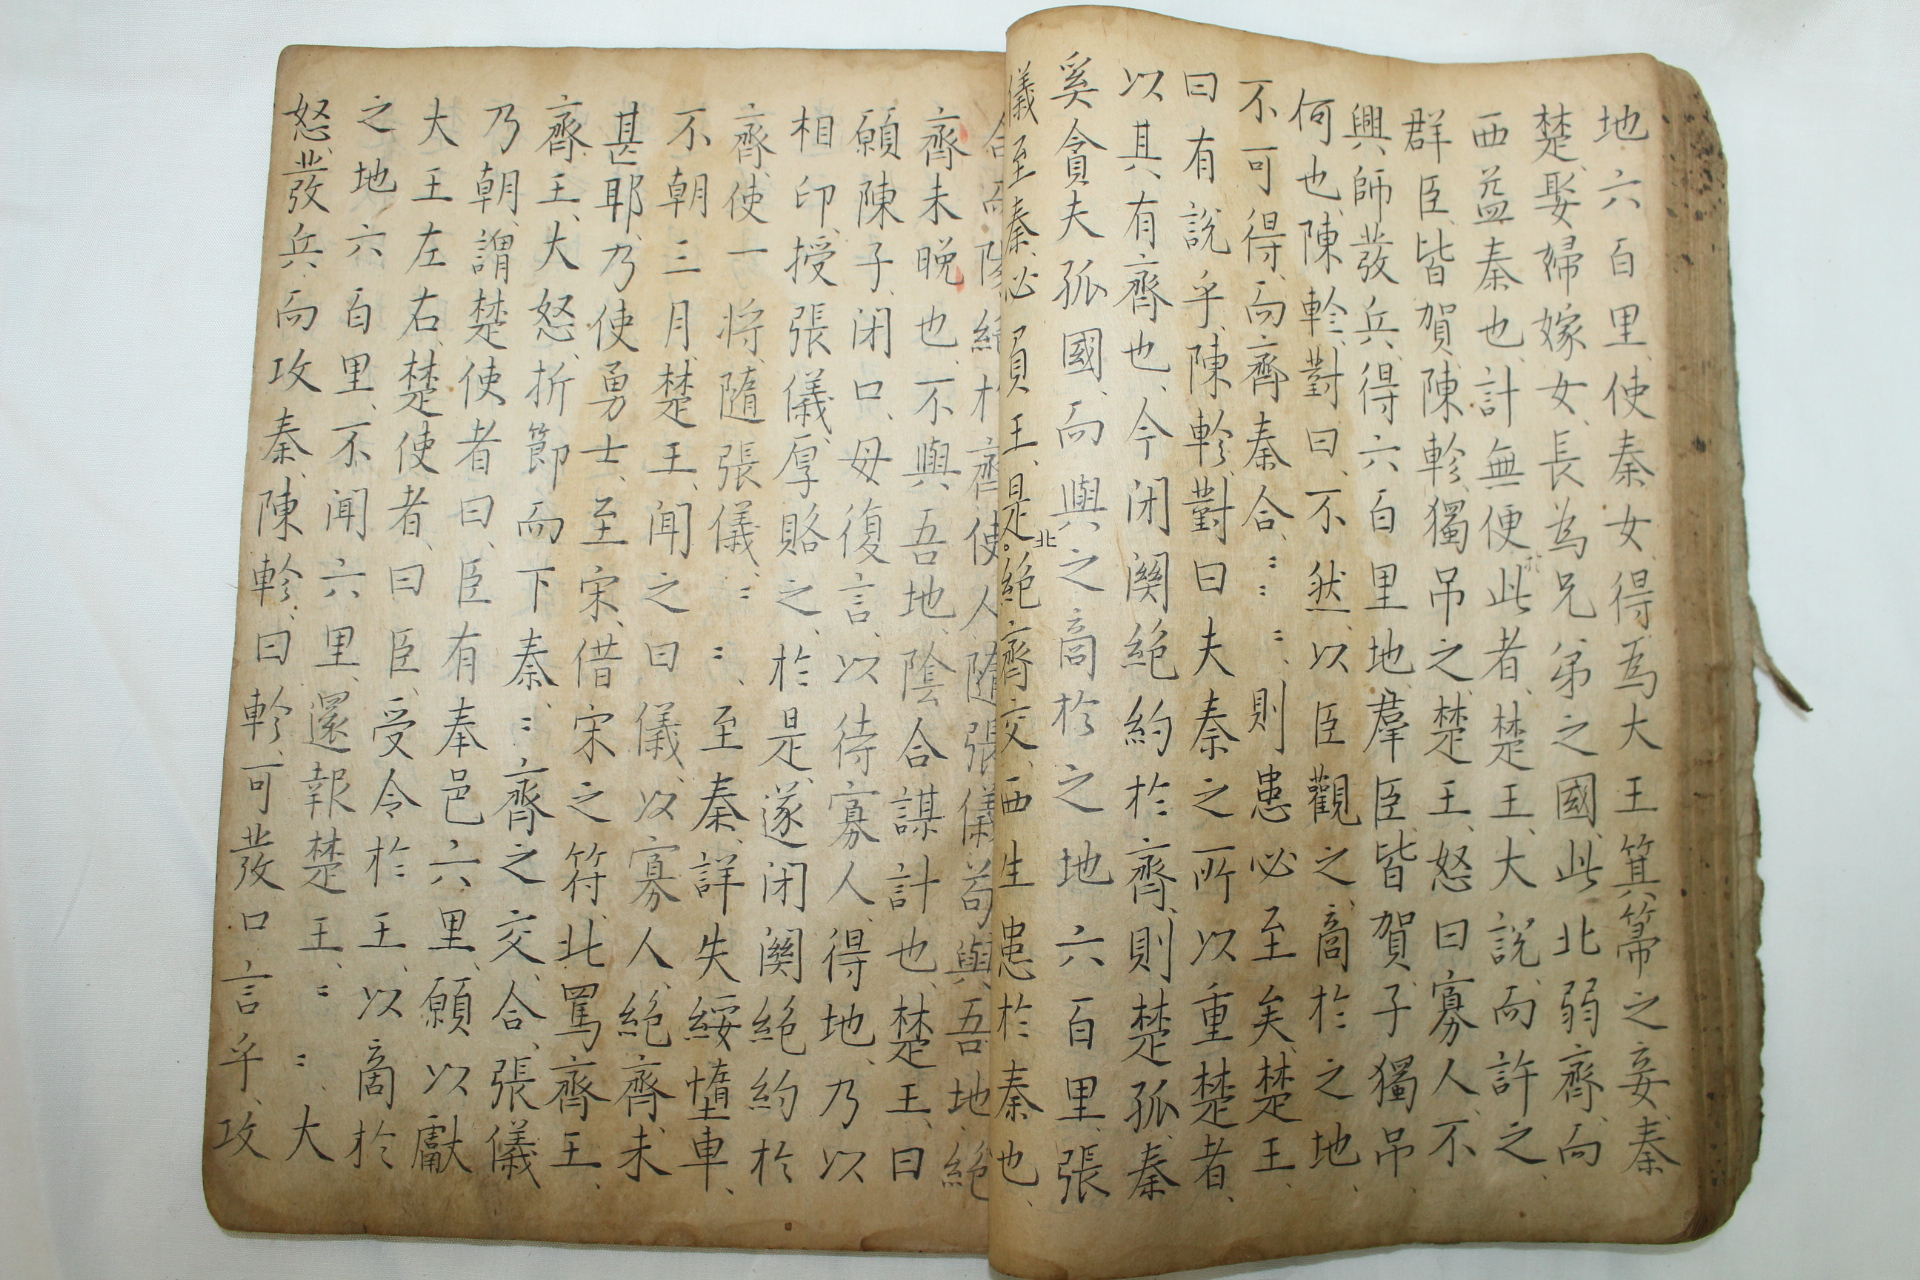 地六百里、使秦女、得爲大王箕箒之妾、秦
楚、娶婦嫁女、長爲兄弟之國、此北弱齊、而
西益秦也、計無便此者、楚王、大說、而許之、
於
群臣、皆賀、陳軫、獨吊之、楚王、怒曰寡人、不
興師發兵、得六百里地、羣臣、皆賀、子獨吊
何也、陳軫、對曰、不然、以臣觀之、商於之地、
不可得、而齊秦合、〻〻〻、則患必至矣、楚王、
曰有說乎、陳軫、對曰夫秦之所以重楚者、
以其有齊也、今閉關絶約於齊、則楚孤、秦
奚貪夫孤國、而與之商於之地六百里、張
儀至秦、必負王、是絶齊交、西生患於秦也、
北
合而陽絶於齊、使人隨張儀、苟與吾地、絶
齊未晚也、不與吾地、陰合謀計也、楚王、曰
願陳子、閉口、毋復言、以待寡人、得地、乃以
相印、授張儀、厚賂之、於是、遂閉關絶約於
齊、使一將、隨張儀、〻〻、至秦、詳失綏墮車、
不朝三月、楚王、聞之曰儀、以寡人、絶齊、未
甚耶、乃使勇士、至宋、借宋之符、北罵齊王、
齊王、大怒、折節而下秦、〻齊之交、合、張儀
乃朝、謂楚使者曰、臣有奉邑六里、願以獻
大王左右、楚使者、曰臣、受令於王、以商於
之地六百里、不聞六里、還報楚王、〻〻、大
怒、發兵而攻秦、陳軫、曰軫、可發口言乎、攻